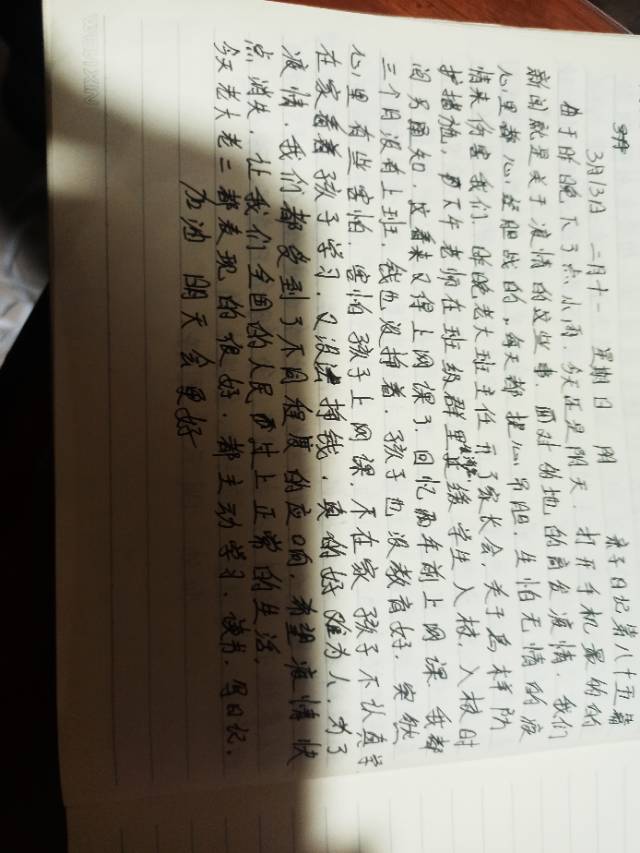 亲子日记第八十五篇
3月13日 二月十一 星期日 阴
由于昨晚下了点小雨，今天还是阴天．打开手机最新的
新闻就是关于疫情的这些事．面对的地的高发疫情．我们
心里都心惊胆战的．每天都提心吊胆．生怕无情的疫
情来伤害我们．昨晚老大班主任开了家长会，关于
护措施．下午老师在班级群里 学生入校．入校时
间另通知．这看来又得上网课了．回忆两年前上网课．我都
三个月没有上班．钱也没挣着．孩子也没教育好．突然
心里有些害怕．害怕孩子上网课．不在家 孩子不认真学
在家看着孩子学习．又没法挣钱．真的好难为人．为了
疫情．我们都受到了不同程度的应响．希望疫情快
点消失．让我们全国的人民 过上正常的生活．
今天老大老二都表现的很好．都主动学习．读书．写日记．
加油 明天会更好